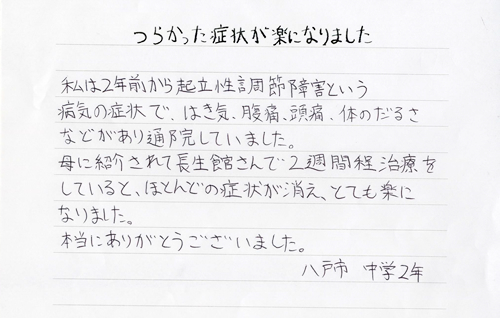 つらかった症状が楽になりました
私は2年前から起立性調節障害という
病気の症状で、はき気、腹痛、頭痛、体のだるさ
などがあり通院していました。
母に紹介されて長生館さんで2週間程治療を
していると、ほとんどの症状が消え、とても楽に
なりました。
本当にありがとうございました。
八戸市 中学2年